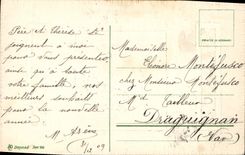 Père et Chérie se
joignent à moi
pour vous présenter
ainsi qu'à toute
votre famille, nos
meilleurs souhaits
pour la nouvelle
année
31/12 09
Mademoiselle
Eléonore Montefusco
chez Monsieur Montefusco
Md Tailleur
Draguignan
(Var)